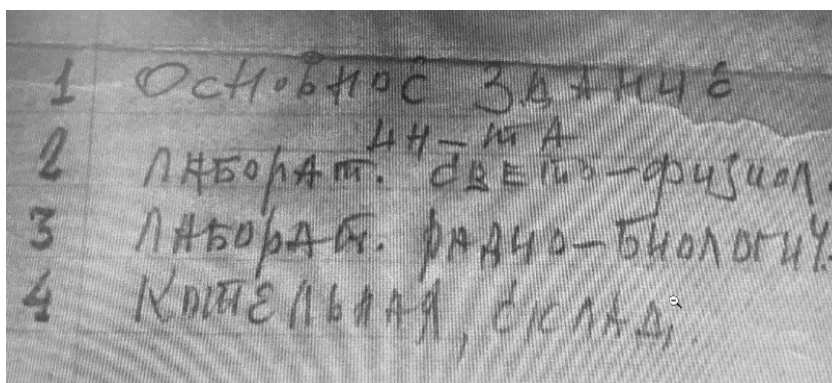 1 Основное здание
ин-та
2 Лаборат. свето-физиол.
3 Лаборат. радио-биологич.
4 Котельная, склад,